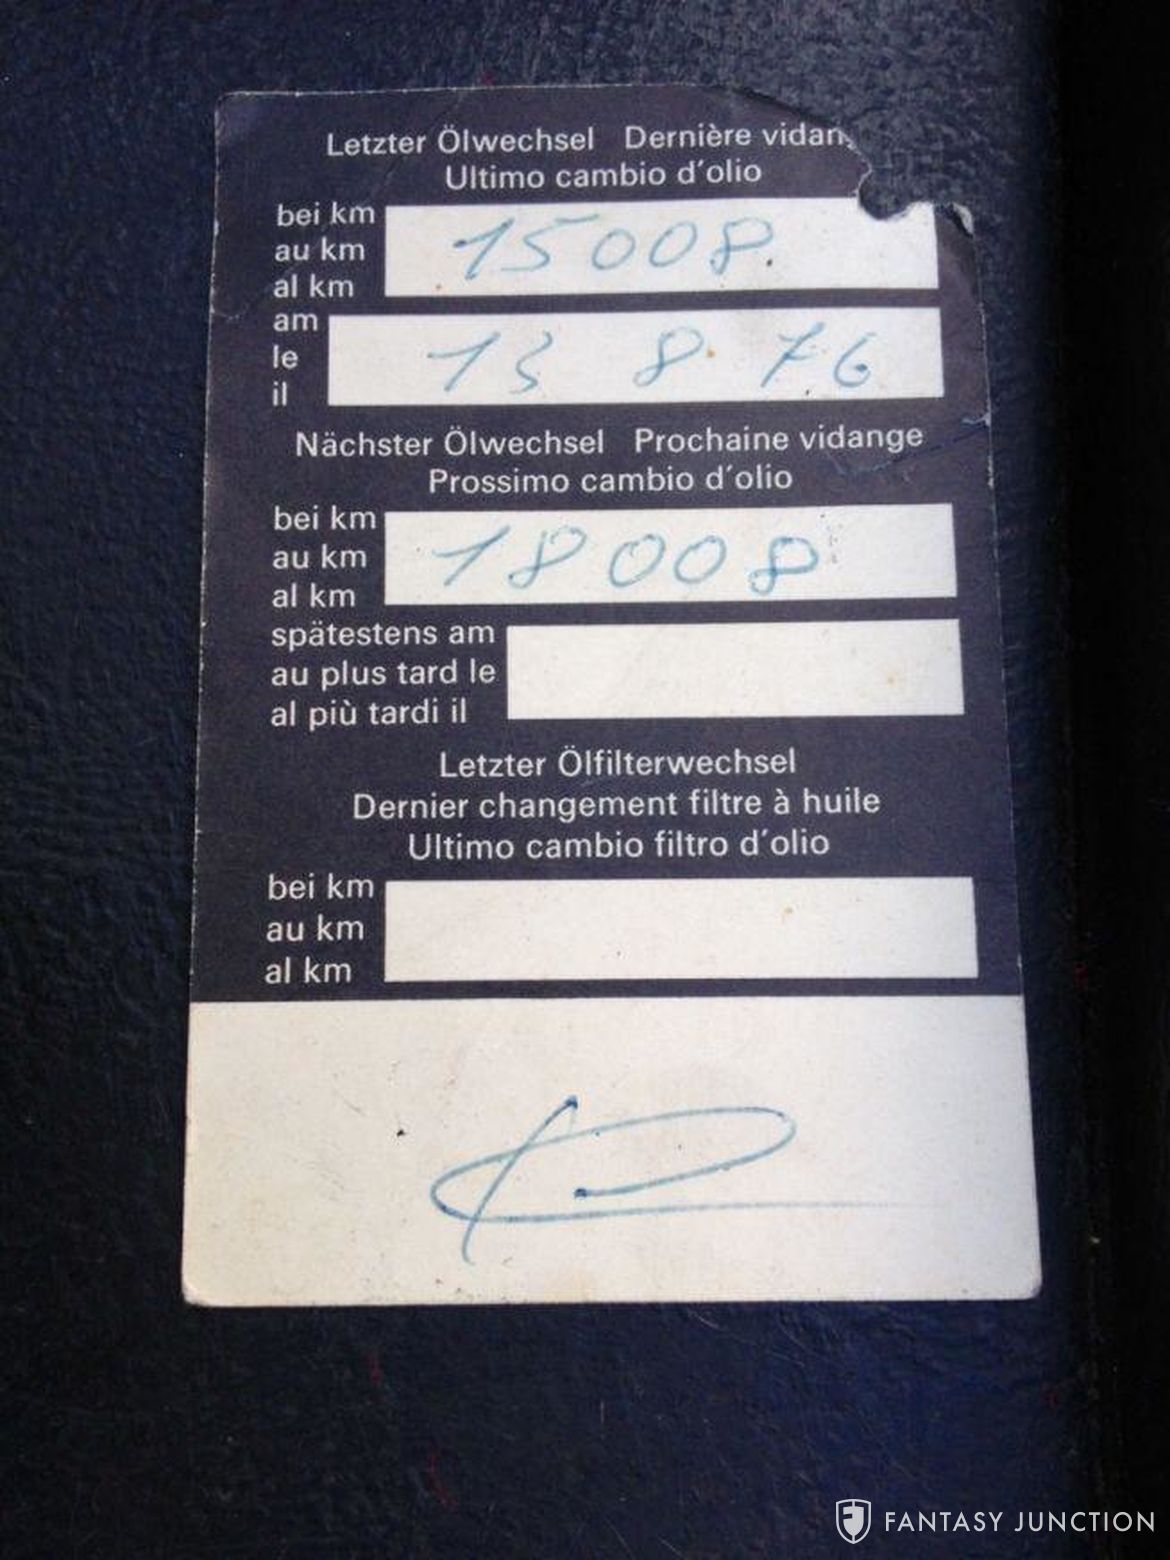 Letzter Ölwechsel Dernière vidang
Ultimo cambio d'olio
bei km
au km
al km
15008.
am
le
il
13 8 76
Nächster Ölwechsel Prochaine vidange
Prossimo cambio d'olio
bei km
au km
al km
18008
spätestens am
au plus tard le
al più tardi il
Letzter Ölfilterwechsel
Dernier changement filtre à huile
Ultimo cambio filtro d'olio
bei km
au km
al km
FANTASY JUNCTION